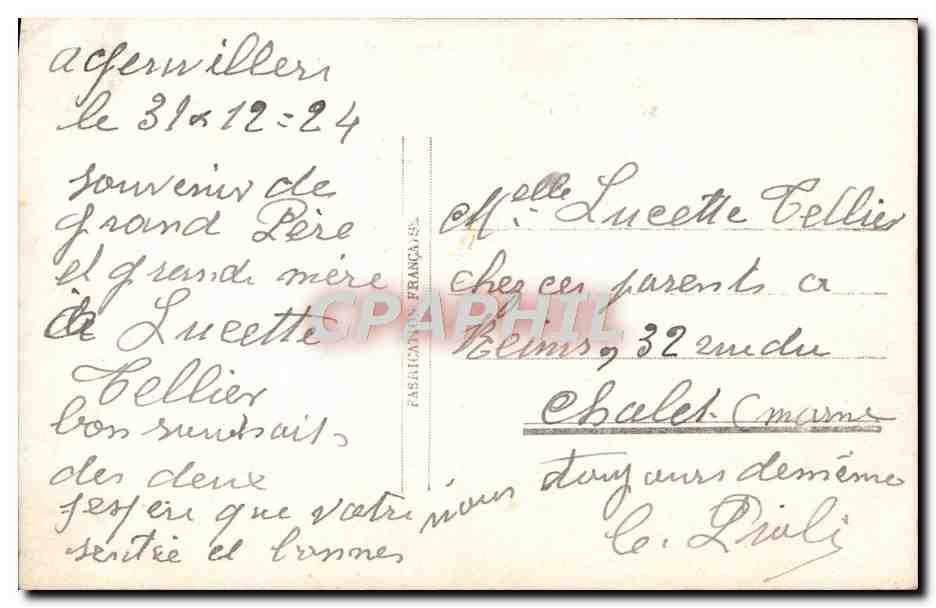 agenvillers
le 31 x 12 = 24
souvenir de
grand Père
et grande mère
de Lucette
Tellier
bon souhaits
des deux
jesperè que votre
sentée et bonnes
nous toujours demême
C. Pioli
FABRICATION FRANÇAISE
Melle Lucette Tellier
chez ces parents a
Reims, 32 rue du
Chalet (marne
CPAPHIL